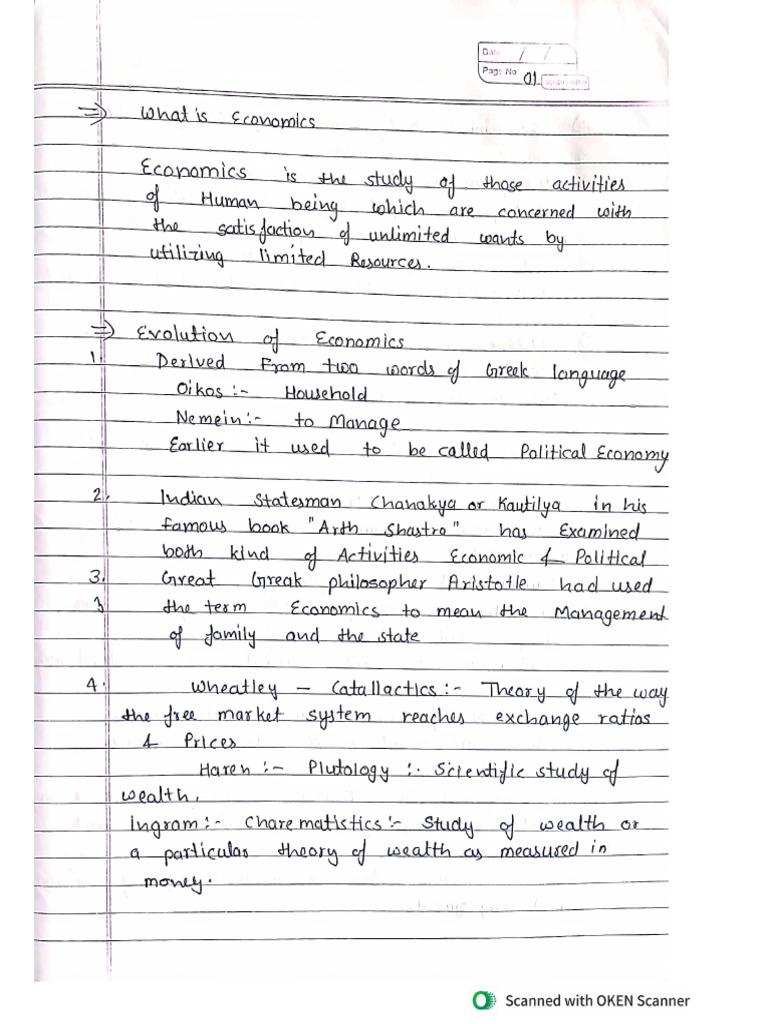 Date / /
Page No 01
⇒ What is Economics
Economics is the study of those activities
of Human being which are concerned with
the satisfaction of unlimited wants by
utilizing limited Resources.
⇒ Evolution of Economics
1. Derived From two words of Greek language
Oikos :- Household
Nemein :- to Manage
Earlier it used to be called Political Economy
2. Indian Statesman Chanakya or Kautilya in his
famous book "Arth Shastra" has Examined
both kind of Activities Economic & Political
3. Great Greak philosopher Aristotle had used
3 the term Economics to mean the Management
of family and the state
4. Wheatley – Catallactics :- Theory of the way
the free market system reaches exchange ratios
& Prices
Haren :- Plutology :- Scientific study of
wealth.
Ingram :- Charematistics :- Study of wealth or
a particular theory of wealth as measured in
money.
Scanned with OKEN Scanner